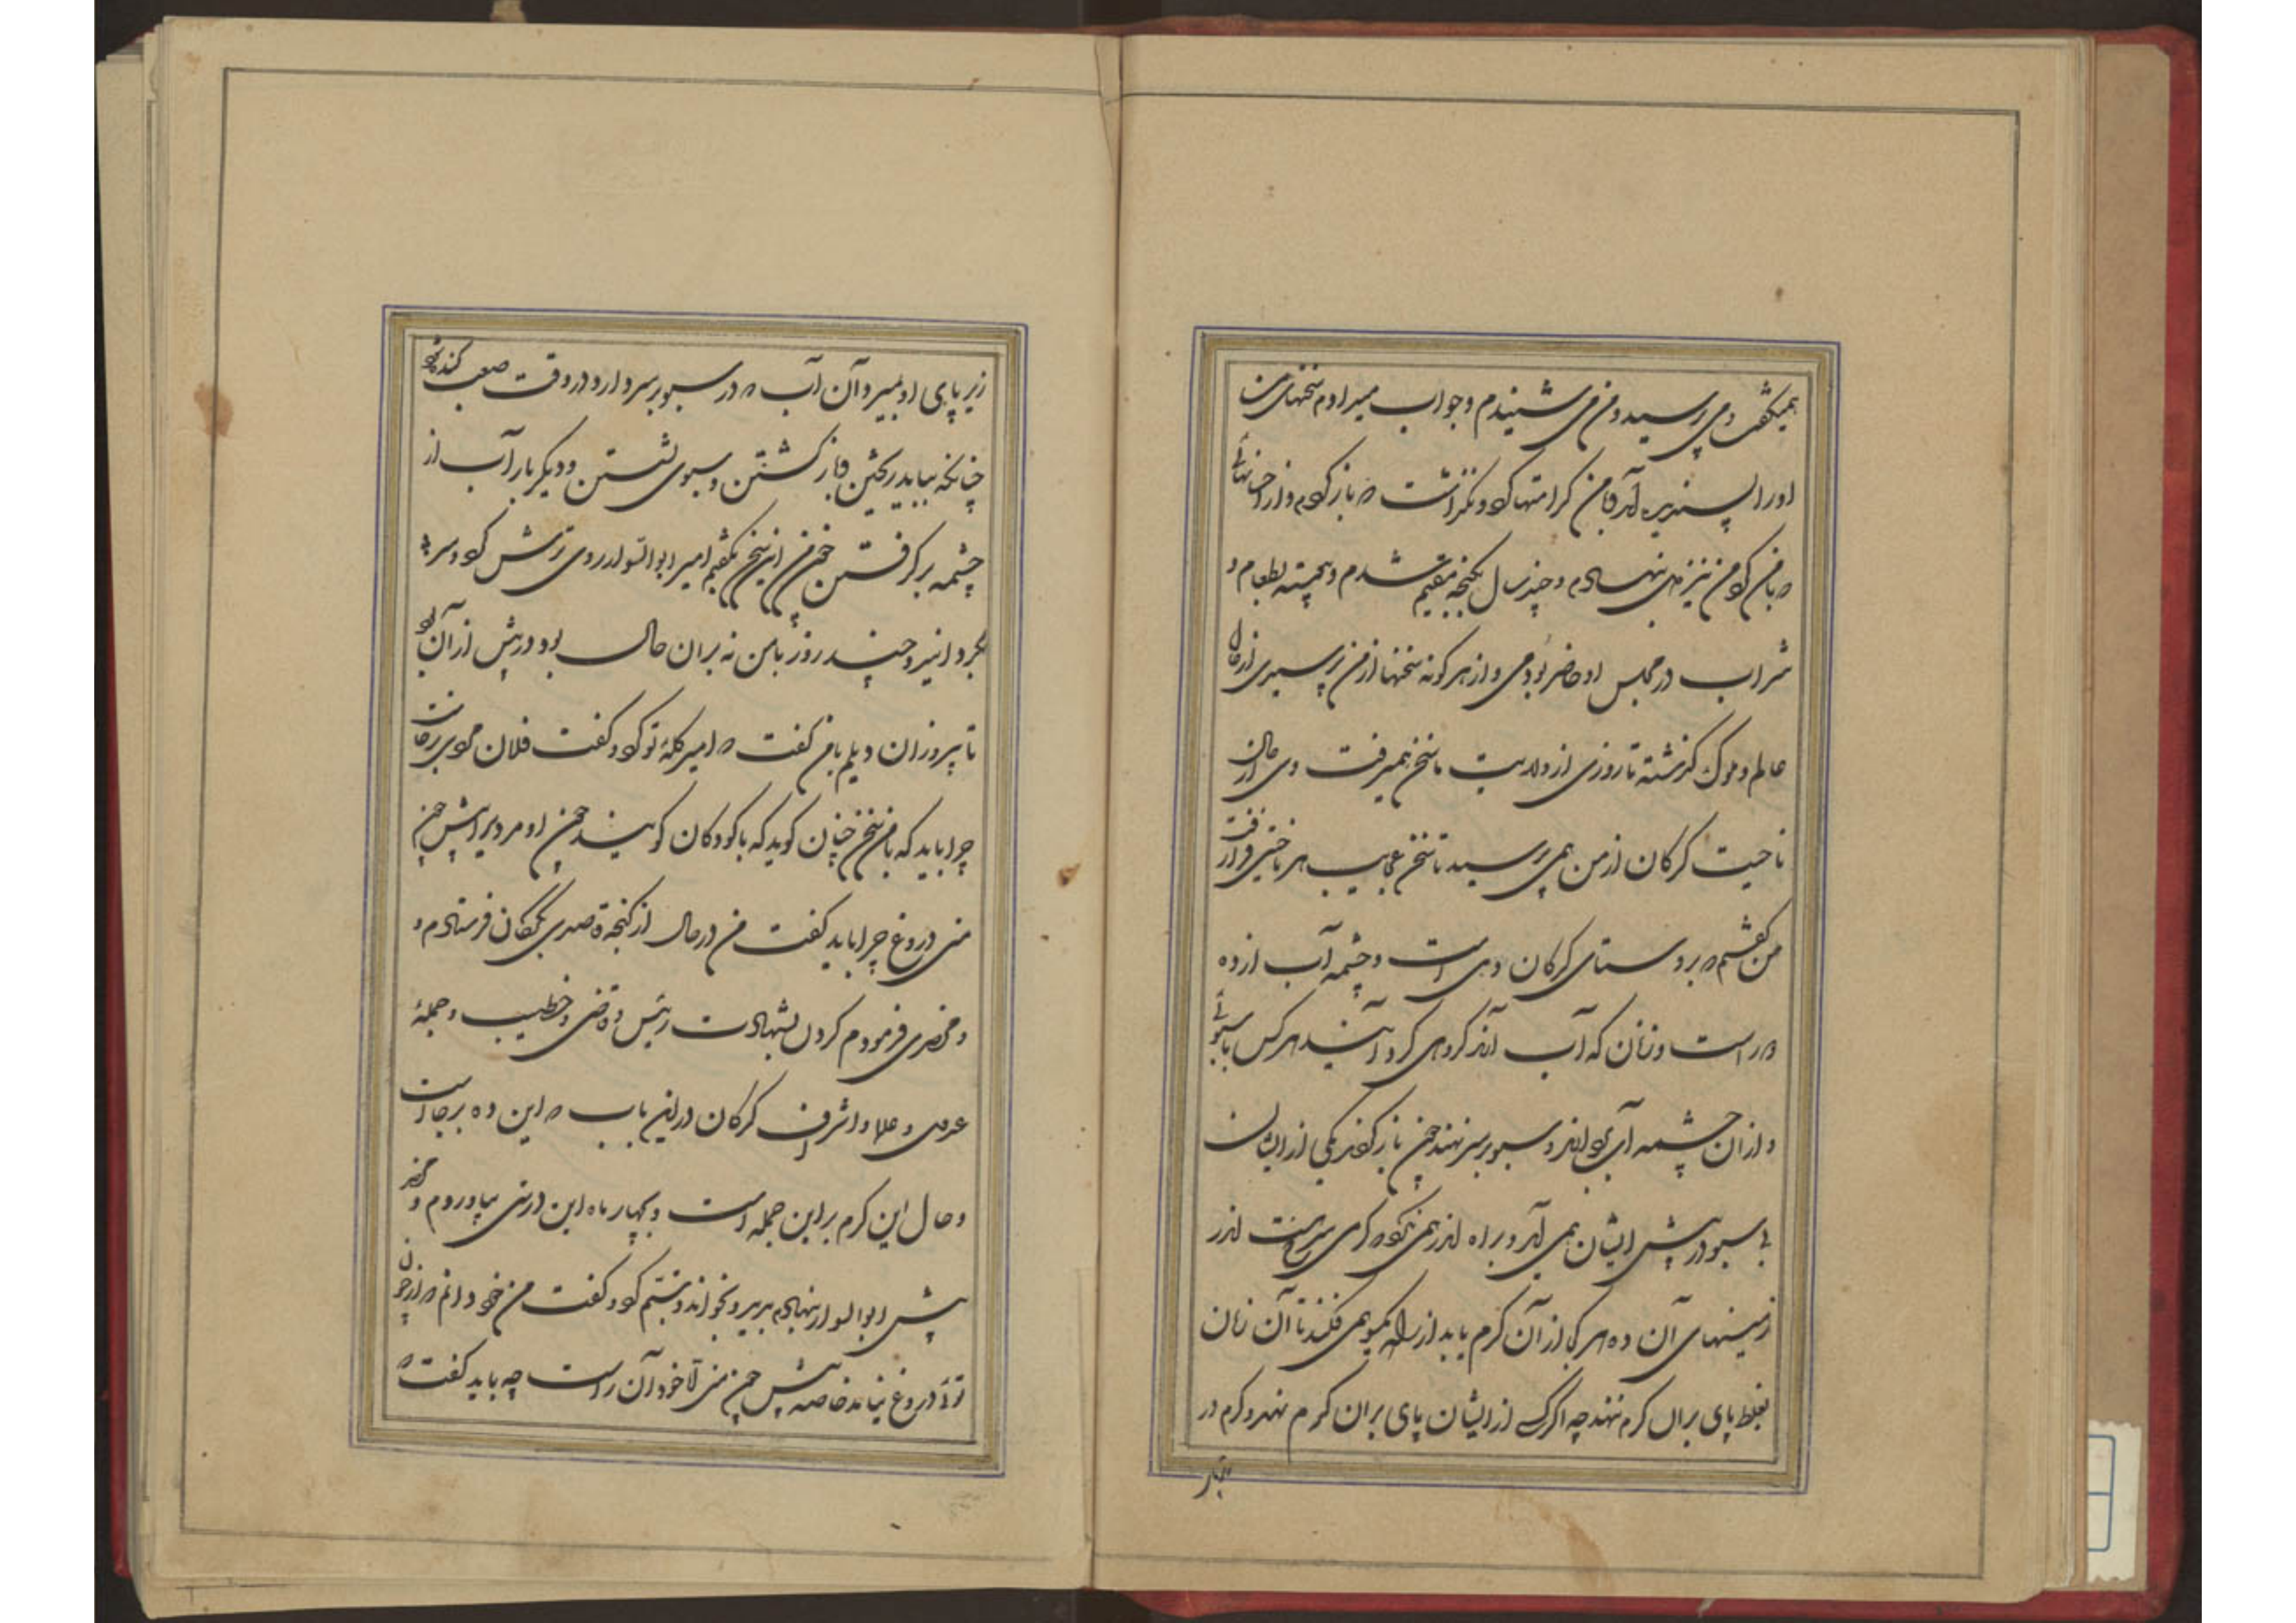 همیگفت و می پرسید و من می شنیدم و جواب میدادم سخنهای من
او را پسندیده آمد با من کرامتها کرد و نگذاشت که باز گردم و از احسانهائی
که با من کرد من نیز دل بنهادم و چند سال بگنجه مقیم شدم و پیوسته بطعام و
شراب در مجلس او حاضر بودمی و از هر گونه سخنها از من پرسیدی از حال
عالم و ملوک گذشته تا روزی از ولایت ما سخن همیرفت و وی از حال
ناحیت گرگان از من همی پرسید تا سخن عجایب هر ناحیتی فراز رفت
من گفتم که بروستای گرگان دهی است و چشمه آب از ده
دور است و زنان که آب آرند گروهی گرد آیند هر کس با سبوئی
و از آن چشمه آب بردارند و سبو بر سر نهند چون باز گردند یکی از ایشان
بی سبو در پیش ایشان همی آید و براه اندر همی نگرد که کرمی سبز است اندر
زمینهای آن ده هر کجا از آن کرم یابد از راه یکسو همی فکند تا آن زنان
بغلط پای بران کرم ننهند چه اگر یک از ایشان پای بران کرم نهد و کرم در
زیر پای او بمیرد آن آب که در سبو بر سر دارد در وقت صعب گنده شود
چنانکه بباید ریختن و باز گشتن و سبوی شستن و دیگر بار آب از
چشمه برگرفتن چون من این سخن بگفتم امیر ابوالسوار روی ترش کرد و سر به
گردانید و چند روز با من نه بران حال بود که پیش از آن بود
تا پیروزان دیلم با من گفت که امیر گله تو کرد و گفت فلان مردی برجاست
چرا باید که با من سخن چنان گوید که با کودکان گویند چون او مرد برا پیش چون
منی دروغ چرا باید گفت من در حال از گنجه قاصدی بگرگان فرستادم و
و محضری فرمودم کردن بشهادت رئیس و قاضی و خطیب و جمله
عدول و علما و اشراف گرگان در این باب که این ده برجا است
و حال این کرم بر این جمله است و بچهار ماه این درستی بیاوردم و محضر
پیش ابوالسوار بنهادم بدید و بخواند و تبسم کرد و گفت من خود دانم که از چون
توئی دروغ نیاید خاصه پیش چون منی اما خود آن راست چه باید گفت که